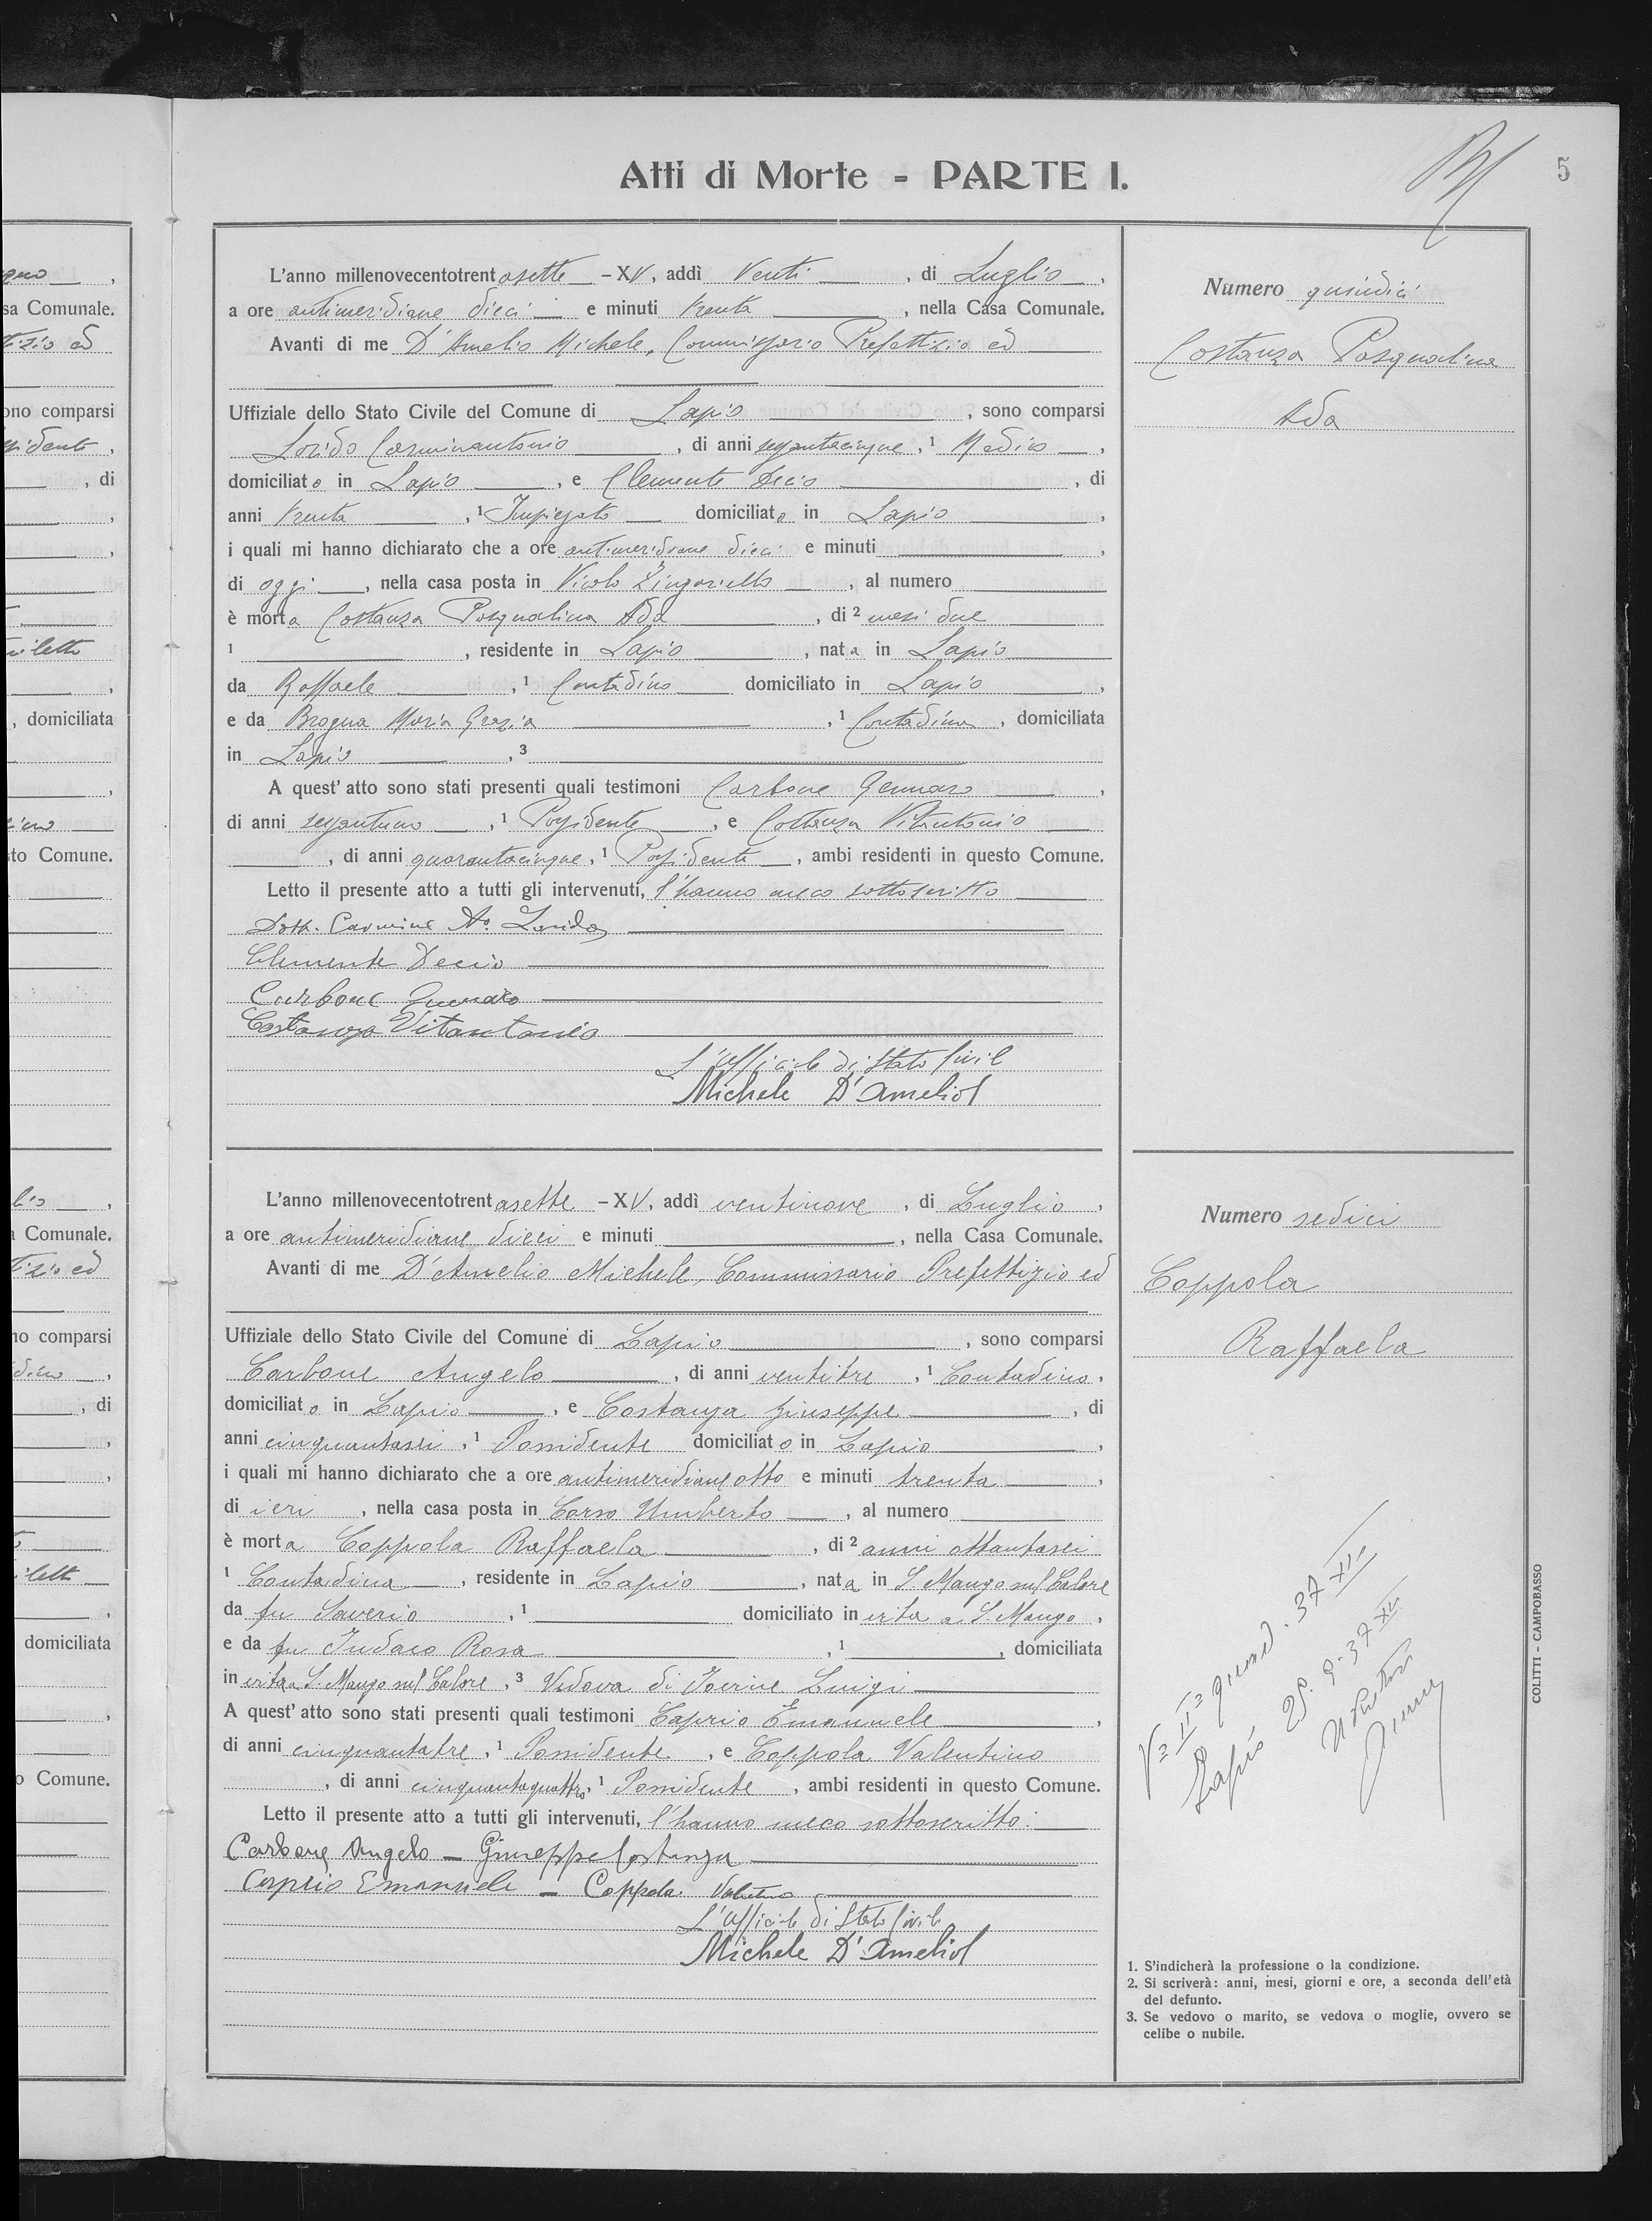 Atti di Morte - PARTE I.
5
L'anno millenovecentotrentasette - XV, addì Venti, di Luglio,
a ore antimeridiane dieci e minuti trenta, nella Casa Comunale.
Avanti di me D'Amelio Michele, Commissario Prefettizio ed
Uffiziale dello Stato Civile del Comune di Lapio, sono comparsi
Carminantonio, di anni sessantacinque, 1 Medico,
domiciliato in Lapio, e Clemente Decio, di
anni trenta, 1 Impiegato domiciliato in Lapio,
i quali mi hanno dichiarato che a ore antimeridiane dieci e minuti,
di oggi, nella casa posta in Vicolo Zingariello, al numero
è morta Costanza Pasqualina Ada, di 2 mesi due
1, residente in Lapio, nata in Lapio
da Raffaele, 1 Contadino domiciliato in Lapio,
e da Brogna Maria Grazia, 1 Contadina, domiciliata
in Lapio, 3
A quest' atto sono stati presenti quali testimoni Carbone Gennaro,
di anni sessantuno, 1 Possidente, e Costanza Vitantonio
, di anni quarantacinque, 1 Possidente, ambi residenti in questo Comune.
Letto il presente atto a tutti gli intervenuti, l'hanno meco sottoscritto
Dott. Carmine
Clemente Decio
Carbone Gennaro
Costanza Vitantonio
L'Ufficiale di Stato Civile
Michele D'Amelio
Numero quindici
Costanza Pasqualina
Ada
L'anno millenovecentotrentasette - XV, addì ventinove, di Luglio,
a ore antimeridiane dieci e minuti, nella Casa Comunale.
Avanti di me D'Amelio Michele, Commissario Prefettizio ed
Uffiziale dello Stato Civile del Comune di Lapio, sono comparsi
Carbone Angelo, di anni ventitre, 1 Contadino,
domiciliato in Lapio, e Costanza Giuseppe, di
anni cinquantasei, 1 Possidente domiciliato in Lapio,
i quali mi hanno dichiarato che a ore antimeridiane otto e minuti trenta,
di ieri, nella casa posta in Corso Umberto, al numero
è morta Coppola Raffaela, di 2 anni ottantasei
1 Contadina, residente in Lapio, nata in S. Mango sul Calore
da fu Saverio, 1 domiciliato in vita a S. Mango,
e da fu Iudaco Rosa, 1, domiciliata
in vita a S. Mango sul Calore, 3 Vedova di Luigi
A quest' atto sono stati presenti quali testimoni Caprio Emanuele,
di anni cinquantatre, 1 Possidente, e Coppola Valentino
, di anni cinquantaquattro, 1 Possidente, ambi residenti in questo Comune.
Letto il presente atto a tutti gli intervenuti, l'hanno meco sottoscritto:
Carbone Angelo - Giuseppe Costanza
Caprio Emanuele - Coppola Valentino
L'Ufficiale di Stato Civile
Michele D'Amelio
Numero sedici
Coppola
Raffaela
Lapio
1. S'indicherà la professione o la condizione.
2. Si scriverà: anni, mesi, giorni e ore, a seconda dell'età
del defunto.
3. Se vedovo o marito, se vedova o moglie, ovvero se
celibe o nubile.
COLITTI - CAMPOBASSO